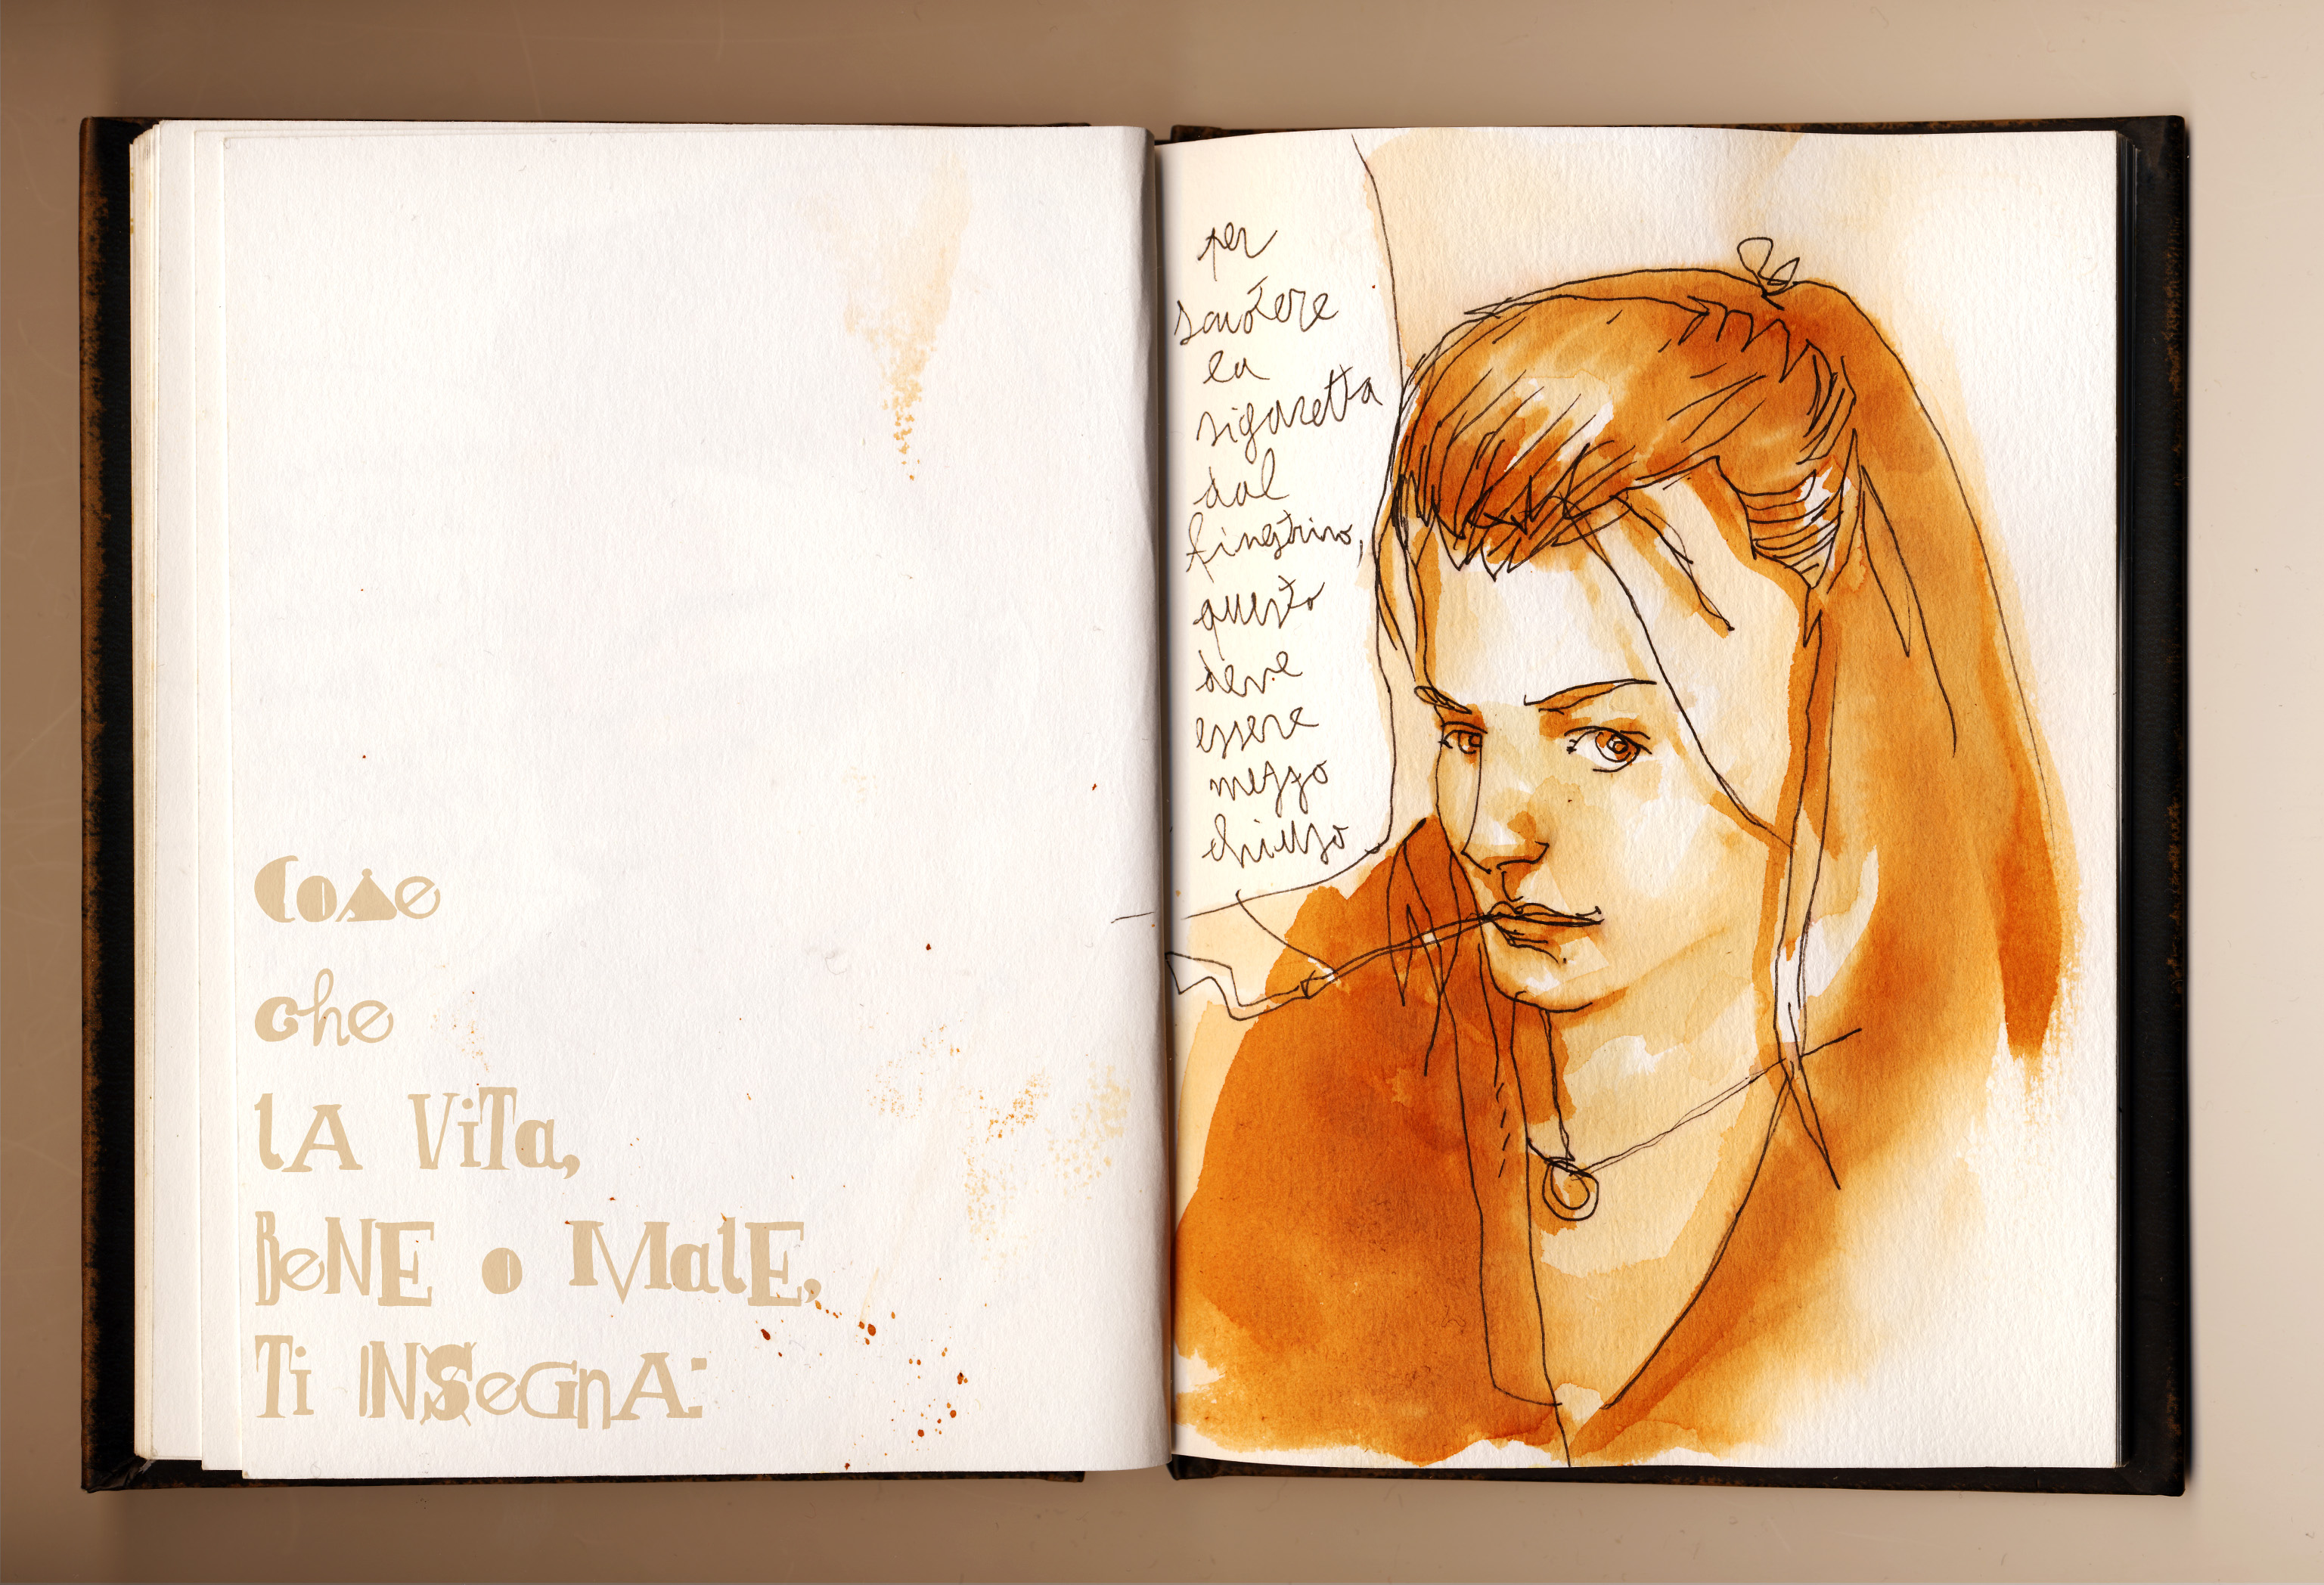 Come
che
lA ViTa,
BeNE o MalE,
Ti INSeGnA:
per
scuotere
la
sigaretta
dal
finestrino,
questo
deve
essere
mezzo
chiuso